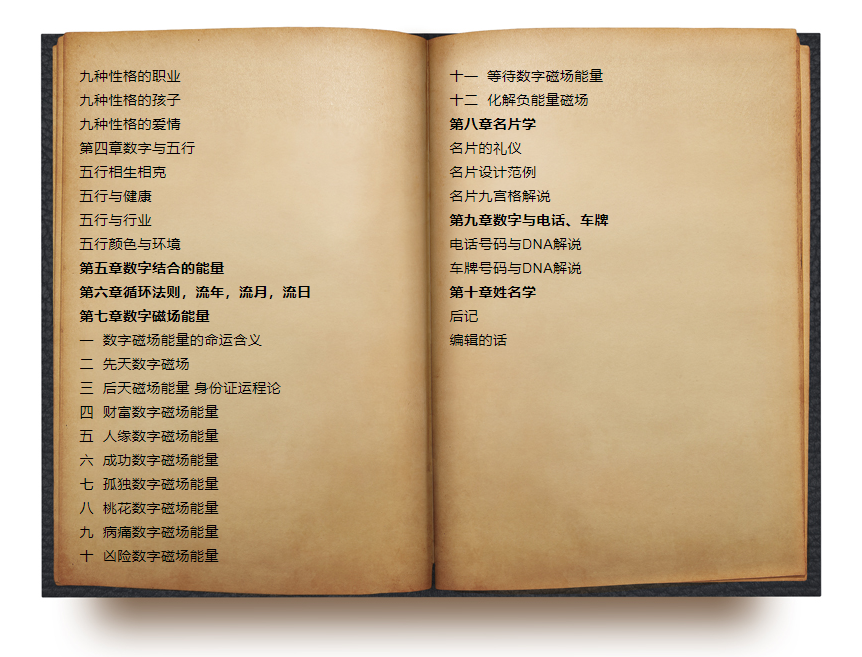 九种性格的职业
九种性格的孩子
九种性格的爱情
第四章数字与五行
五行相生相克
五行与健康
五行与行业
五行颜色与环境
第五章数字结合的能量
第六章循环法则，流年，流月，流日
第七章数字磁场能量
一 数字磁场能量的命运含义
二 先天数字磁场
三 后天磁场能量 身份证运程论
四 财富数字磁场能量
五 人缘数字磁场能量
六 成功数字磁场能量
七 孤独数字磁场能量
八 桃花数字磁场能量
九 病痛数字磁场能量
十 凶险数字磁场能量
十一 等待数字磁场能量
十二 化解负能量磁场
第八章名片学
名片的礼仪
名片设计范例
名片九宫格解说
第九章数字与电话、车牌
电话号码与DNA解说
车牌号码与DNA解说
第十章姓名学
后记
编辑的话